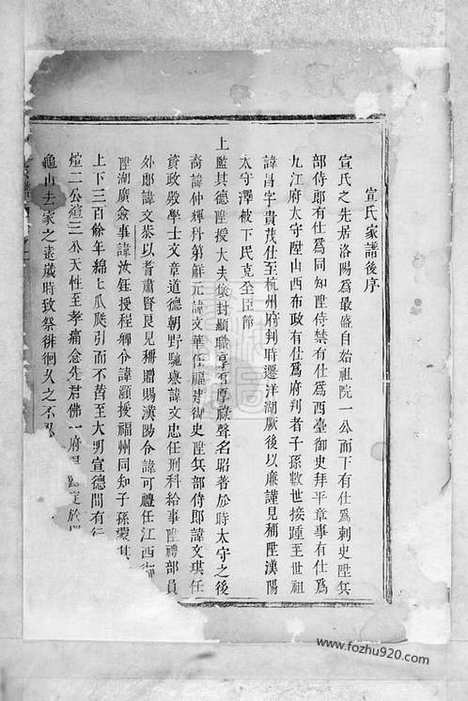 宣氏家譜後序
宣氏之先居洛陽為最盛自始祖院一公而下有仕為刺史陞兵
部侍郎有仕為同知陞侍禁有仕為西臺御史拜平章事有仕為
九江府太守陞山西布政有仕為府判者子孫數世接踵至世祖
諱昌字貴茂仕至杭州府判時遷洋湖厥後以廉謹見稱陞漢陽
太守澤被下民克全臣節
上鑒其德陞授大夫俟封顯職享有厚祿聲名昭著於時太守之後
裔諱仲輝丹第解元諱文華任福建御史陞兵部侍郎諱文琪任
資政殿學士文章道德朝野馳譽諱文忠任刑科給事陞禮部員
外郎諱文恭以耆肅賢良見稱贈賜漢陽令諱可禮任江西
陞湖廣僉事諱汝鈺授程鄉令諱灝授福州同知子孫
上下三百餘年綿七瓜瓞引而不替至大明宣德間有行
煊二公煊三公天性至孝痛念先君佛一府
龜山去家之遠歲時致祭徘徊久之不忍
www.fozhu920.com